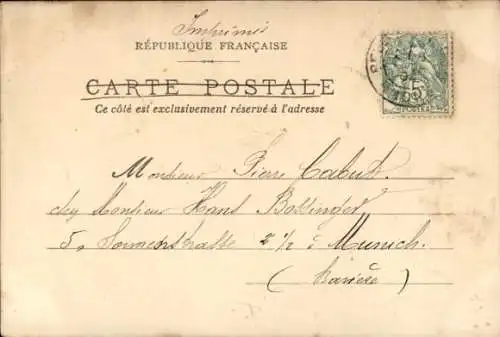 Imprimé
RÉPUBLIQUE FRANÇAISE
CARTE POSTALE
Ce côté est exclusivement réservé à l'adresse
5
Monsieur Pierre Cabut.
chez Monsieur Hans Bossinger
5, 2 1/2 à Munich.
(Bavière)